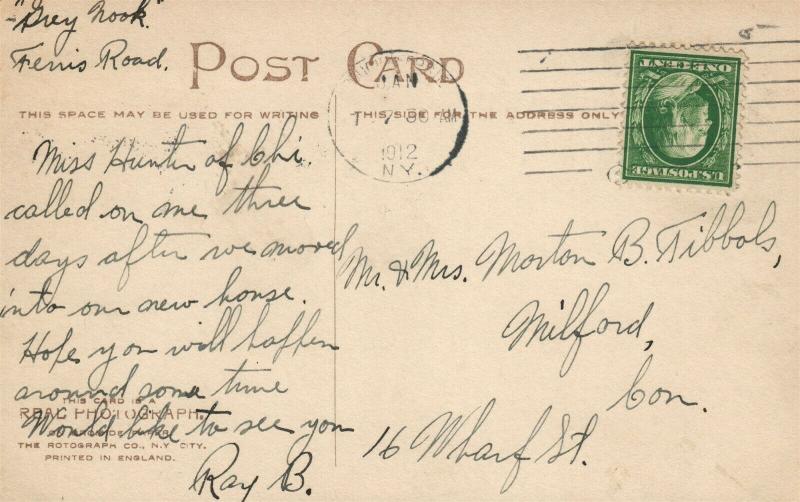 "Grey Nook."
Ferris Road.
POST CARD
THIS SPACE MAY BE USED FOR WRITING
THIS SIDE FOR THE ADDRESS ONLY
JAN
7
1912
N.Y.
ONE CENT
U.S. POSTAGE
Miss Hunter of Chi.
called on me three
days after we moved
into our new house.
Hope you will happen
around some time
Would like to see you
Ray B.
THIS CARD IS A
REAL PHOTOGRAPH.
THE ROTOGRAPH CO., N.Y. CITY.
PRINTED IN ENGLAND.
Mr. & Mrs. Morton B. Tibbals,
Milford,
Con.
16 Wharf St.